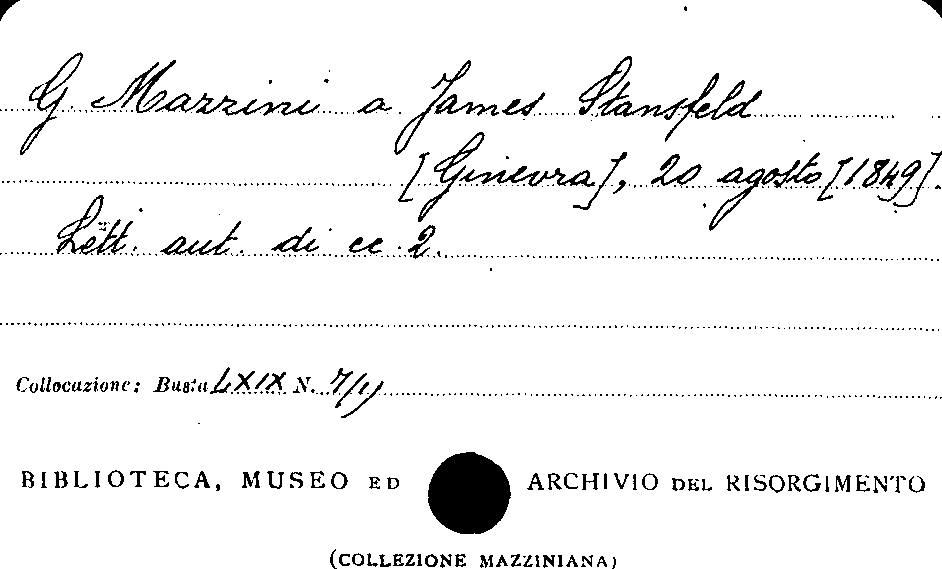 G. Mazzini a James Stansfeld
[Ginevra], 20 agosto [1849].
Lett. aut. di cc. 2.
Collocazione: Busta LXIX N.
BIBLIOTECA, MUSEO ED ARCHIVIO DEL RISORGIMENTO
(COLLEZIONE MAZZINIANA)